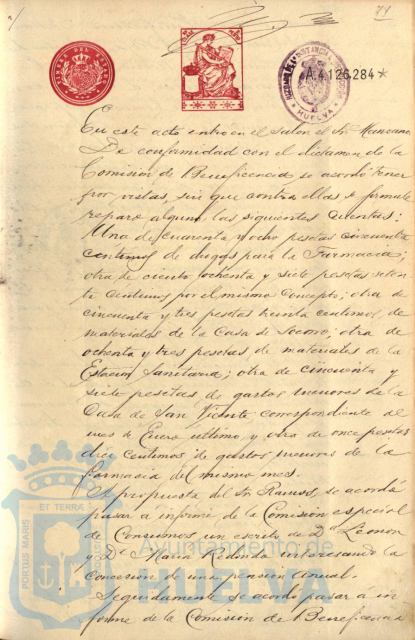 71
TIMBRE DEL ESTADO
A.4126,284*
HUELVA
En este acto entro en el Salon el Sr. Manzano
De conformidad con el dictamen de la
Comisión de Beneficencia se acordó tener
por vistas, sin que contra ellas se formule
reparo alguno las siguientes cuentas:
Una de cuarenta y ocho pesetas cincuenta
centimos de drogas para la Farmacia;
otra de ciento ochenta y siete pesetas seten
ta centimos por el mismo concepto; otra de
cincuenta y tres pesetas treinta centimos de
materiales de la Casa de Socorro; otra de
ochenta y tres pesetas, de materiales de la
Estacion Sanitaria; otra de cincuenta y
siete pesetas de gastos menores de la
Casa de San Vicente correspondiente al
mes de Enero último, y otra de once pesetas
diez centimos de gastos menores de la
farmacia del mismo mes.
A propuesta del Sr. se acordó
pasar a informe de la Comisión especial
de Consumos un escrito de Dª Leonor
y Dª Maria Redondo interesando la
concesion de una pension anual.
Seguidamente se acordó pasar a in
forme de la Comisión de Beneficencia
PORTUS MARIS ET TERRÆ
Ayuntamiento de
HUELVA